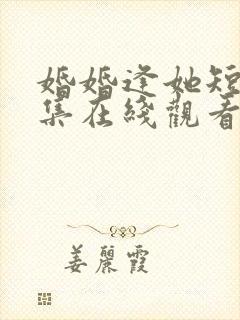 婚婚逢她短
集在綫觀看
姜麗霞